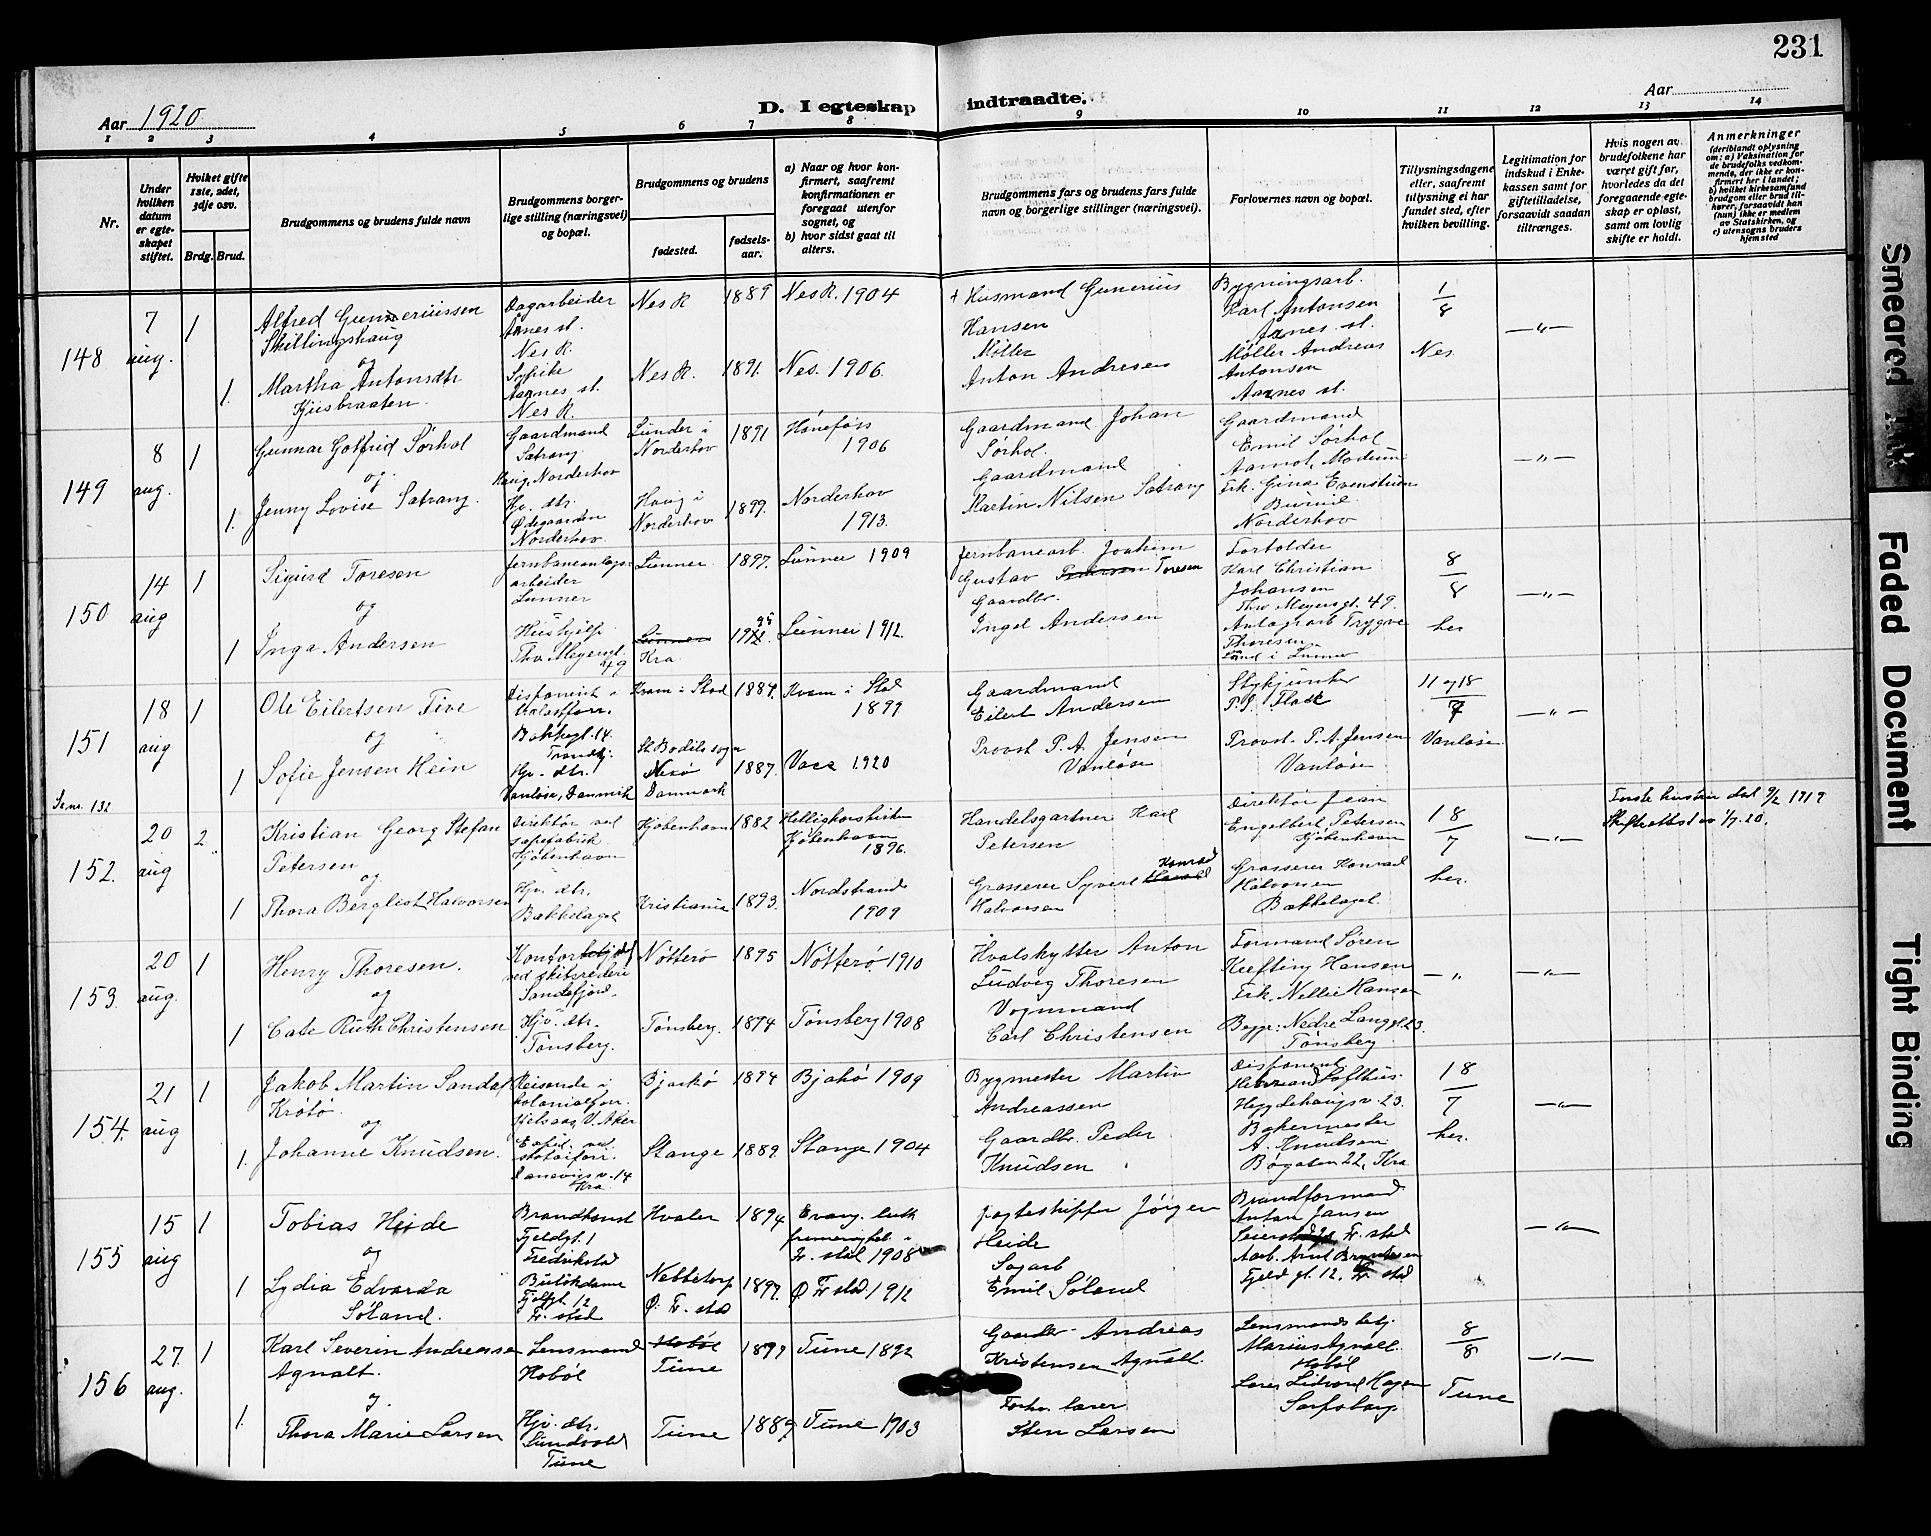 231
Aar 1920
D. I egteskap indtraadte.
Aar
1 2 3 4 5 6 7 8 9 10 11 12 13 14
Nr.
Under hvilken datum er egteskapet stiftet.
Hvilket gifte 1ste, 2det, 3dje osv.
Brdg. Brud.
Brudgommens og brudens fulde navn
Brudgommens borgerlige stilling (næringsvei) og bopæl.
Brudgommens og brudens
fødested.
fødselsaar.
a) Naar og hvor konfirmert, saafremt konfirmationen er foregaat utenfor sognet, og
b) hvor sidst gaat til alters.
Brudgommens fars og brudens fars fulde navn og borgerlige stillinger (næringsvei).
Forlovernes navn og bopæl.
Tillysningsdagene eller, saafremt tillysning ei har fundet sted, efter hvilken bevilling.
Legitimation for indskud i Enkekassen samt for giftetilladelse, forsaavidt saadan tiltrænges.
Hvis nogen av brudefolkene har været gift før, hvorledes da det foregaaende egteskap er opløst, samt om lovlig skifte er holdt.
Anmerkninger (deriblandt oplysning om: a) Vaksination for de brudefolks vedkommende, der ikke er konfirmert her i landet; b) hvilket kirkesamfund brudgom eller brud tilhører, forsaavidt han (hun) ikke er medlem av Statskirken, og c) utensogns bruders hjemsted
148
7 aug.
1
Alfred Gunneriussen
Skillingshaug
og
1. Martha Antonsdtr
Kjusbraaten.
Dagarbeider
Aarnes st.
Nes R.
Aarnes st.
Nes R.
Nes R 1889 Nes R. 1904
Nes R. 1891. Nes. 1906.
+ Husmand Gunerius
Hansen
Møller
Anton Andresen
Bygningsarb.
Karl Antonsen
Aarnes st.
Møller Andreas
Antonsen
Aarnes st.
1/8
Nes.
—"—
149
8 aug.
1
Gunnar Gotfrid Sørhol
og
1. Jenny Lovise Satrang.
Gaardmand
Satrang
Haug, Norderhov
Hj. dtr.
Ødegaarden
Norderhov.
Lunder i
Norderhov 1891 Hønefoss
1906
Haug i
Norderhov 1899. Norderhov
1913.
Gaardmand Johan
Sørhol.
Gaardmand
Martin Nilsen Satrang
Gaardmand
Emil Sørhol
Aamot, Modum
Frk. Gina Evenstuen
Norderhov
—"—
150
14 aug
1
Sigurd Toresen
og
1 Inga Andersen
Jernbaneanlægsarbeider
Lunner
Hushjelp
Thv. Meyersgt. 49
Lunner 1897. Lunner 1909
Lunner
Kra. 95 Lunner 1912.
Jernbanearb. Joakim
Gustav Pedersen Toresen
Gaardbr.
Ingel Andersen
Forholder
Karl Christian
Johansen
Thv Meyersgt. 49.
Anlægsarb Trygve
Thoresen
Lund i Lunner
8/8
her
—"—
151
18 aug
1
Ole Eilertsen Five
og
1 Sofie Jensen Hein
Disponent i
Bakkegt. 14.
Trondhj.
Hj. dtr.
Vanløse, Danmark
Kvam i Stod 1884. Kvam i Stod
1899
St. Bodils sogn
Nexø
Danmark 1887. Vaca 1920
Gaardmand
Eilert Andersen
Provst P. A. Jensen
Vanløse
Stykjunker
P. P. Flack
Provst P. A. Jensen
Vanløse
11 og 18/7
Vanløse
—"—
Se nr. 132
152.
20 aug
2.
Kristian Georg Stefan
Petersen
og
1 Thora Berglist Halvorsen
Direktør ved
sæpefabrik
Kjøbenhavn
Hj. dtr.
Bækkelaget
Kjøbenhavn 1882 Helligkorskirken
Kjøbenhavn
1896.
Kristiania 1893. Nordstrand
1909
Handelsgartner Karl
Petersen
Grosserer Syvert Konrad
Halvorsen
Direktør Jean
Engelbert Petersen
Kjøbenhavn
Grosserer Konrad
Halvorsen
Bækkelaget.
18/7
her.
—"—
Første hustru død 9/2 1919
153.
20 aug.
1
Henry Thoresen.
og
1 Cate Ruth Christensen
ved skibsrederi
Sandefjord.
Hj. dtr.
Tønsberg.
Nøtterø 1895 Nøtterø 1910
Tønsberg. 1894 Tønsberg 1908
Hvalskytter Anton
Ludvig Thoresen
Vognmand
Carl Christensen
Formand Søren
Keefting Hansen
Frk. Nellie Hansen
Begge: Nedre Langgt. 23.
Tønsberg
—"
—"—
154.
21 aug
1
Jakob Martin Sandal
Krøtø.
og
1. Johanne Knudsen.
Reisende i
kolonialforr.
V. Aker
Eksped. ved
Danevigsv. 14
Kra.
Bjarkø 1894 Bjakø 1909
Stange 1889 Stange 1904
Bygmester Martin
Andreassen
Gaardbr. Peder
Knudsen
Disponent
Herman Lofthus.
Hegdehaugsv. 23.
Bakermester
A. Knudsen
Bøgaten 22, Kra
18/7
her.
—"—
155
15 aug
1
Tobias Heide
og
1 Lydia Edvarda
Søland.
Brandkonst
Fjeldgt. 1
Fredrikstad
Butikdame
Fjeldgt. 12
Fr. stad
Hvaler 1894 Evang. luth
frimenighet i
Fr. stad 1908
Nebbetorp
Ø. Fr. stad 1897. Ø. Fr stad 1912
Jagteskipper Jørgen
Heide
Sagarb
Emil Søland
Brandformand
Anton Jansen
Fr. stad
Aarb. Arnt Bryntesen
Fjeldgt. 12. Fr stad
—"—
156
27. aug.
1
Karl Severin Andreassen
Agnalt.
og
1. Thora Marie Larsen
Lensmand
Hobøl
Hj. dtr.
Sundvold
Tune
Hobøl
Tune 1877 Tune 1892
Tune 1889 Tune 1903
Gaardbr. Andreas
Kristensen Agnalt.
Forhv. lærer
Sten Larsen
Lensmandsbetj.
Marius Agnalt.
Hobøl
Lærer Lidvard Hagen
Sarpsborg
8/8
Tune
—"—
Smeared Ink
Faded Document
Tight Binding